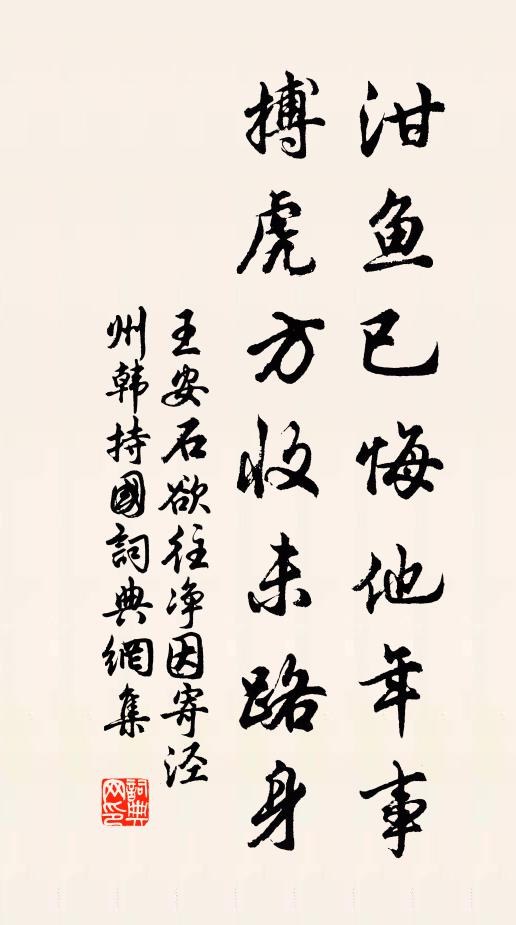 泔鱼已悔他年事
搏虎方收末路身
王安石欲往净因寄泾
州韩持國詞典網集
詞典網印